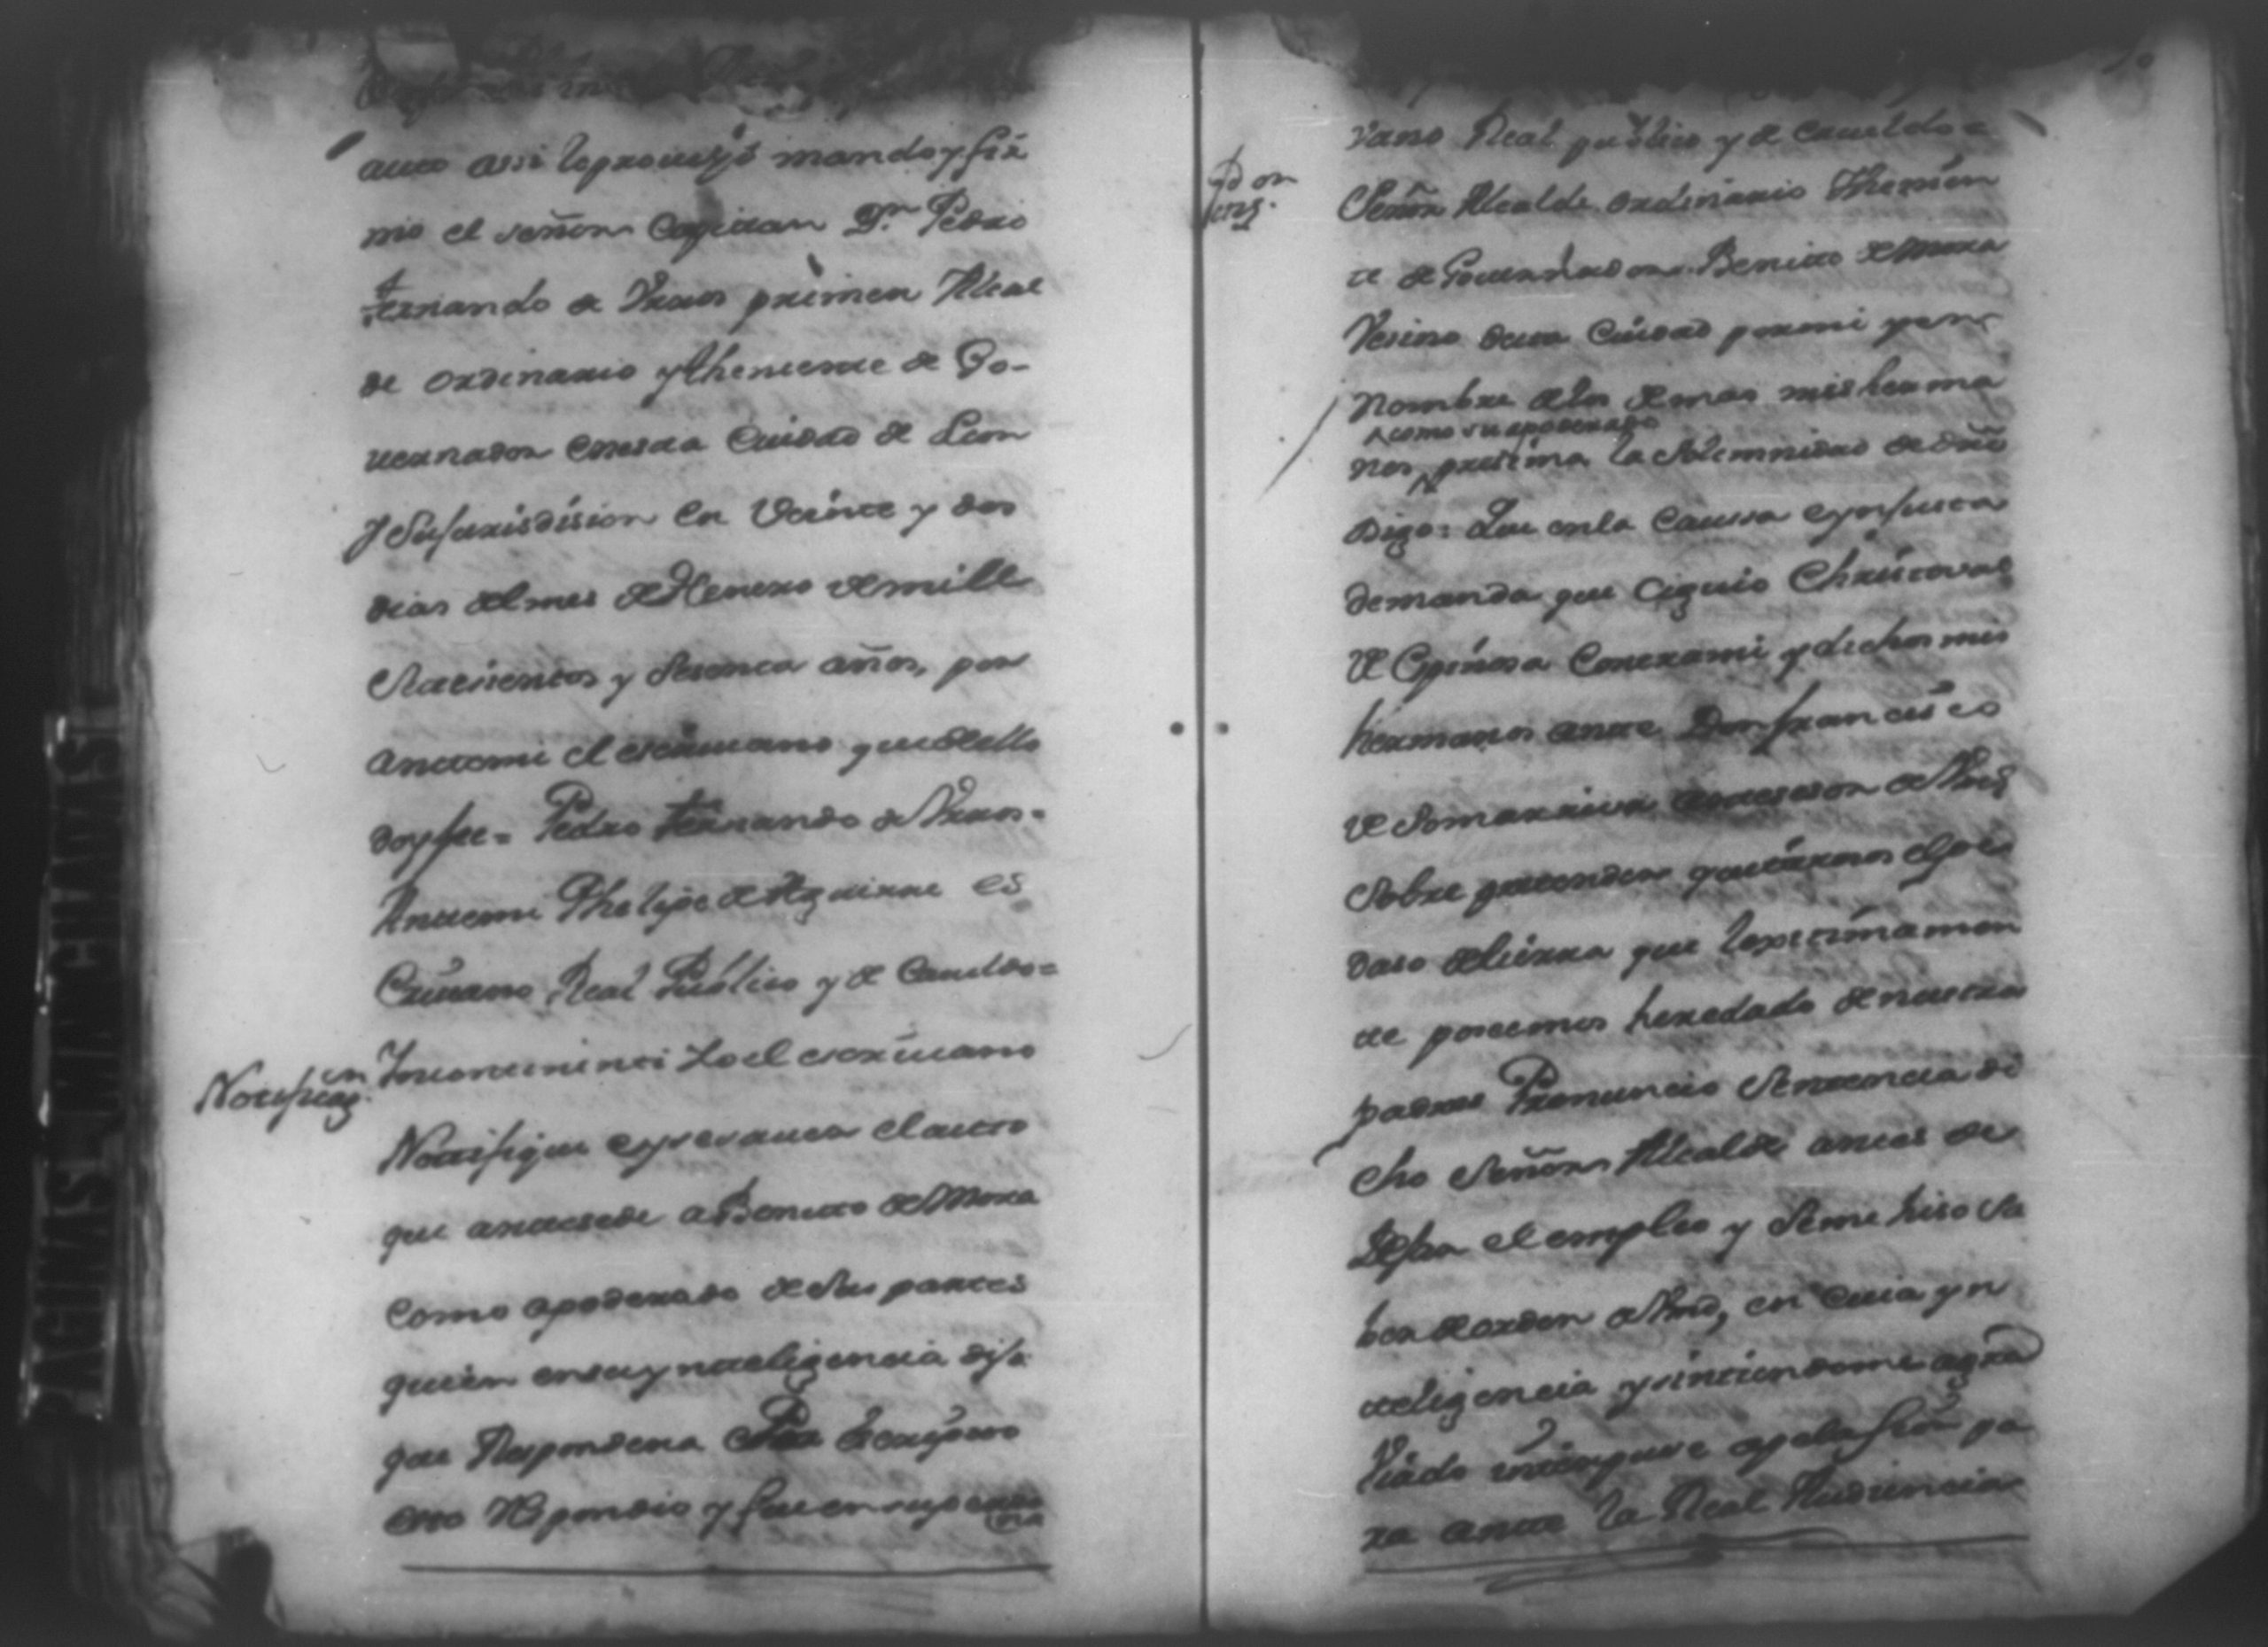 auto assi lo proueyó mando y fir
mo el señor Capitan Dn Pedro
fernando de Vrros primer Alcal
de ordinario y theniente de Go-
uernador en esta Ciudad de Leon
y Su Jurisdision en Veinte y dos
dias del mes de Henero de mill
Setecientos y Sesenta años, por
ante mi el escriuano que de ello
doy fee = Pedro fernando de Vrros =
Ante mi Phelipe de Aguirre es
Criuano Real Publico y de Cauildo =
Notificaon.
Yncontinenti Yo el escriuano
Notifique el auto
que antesede a Benitto de Mora
Como apoderado de Sus partes
quien en su ynteligencia dijo
que Respondera Por Escripto
esto Respondio y fue en su persona
vano Real publico y de Cauildo =
Señor Alcalde ordinario Thenien
te de Gouernador Benitto de Mora
Vesino de esta Ciudad por mi y en
Nombre de los demas mis herma
^como su apoderado
nos, la Solemnidad de dro
Digo: Que en la Caussa e ynjusta
demanda que Ciguio Christoval
de Espinosa Contra mi y dichos mis
hermanos ante Don francisco
de Somarriva antesesor de Vmd
Sobre pretender quitarnos el pe
daso de tierra que lexitimamen
te poseemos heredado de nuestros
padres Pronuncio Sentencia di
cho Señor Alcalde antes de
Dejar el empleo y Se me hiso Sa
ber de orden de Vmd, en Cuia yn
teligencia y sintiendome agra
Viado interpuse apelasion pa
ra ante la Real Audiencia